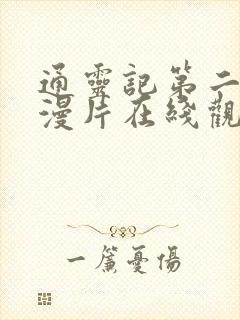 通靈記第二
漫片在綫觀
一簾憂傷